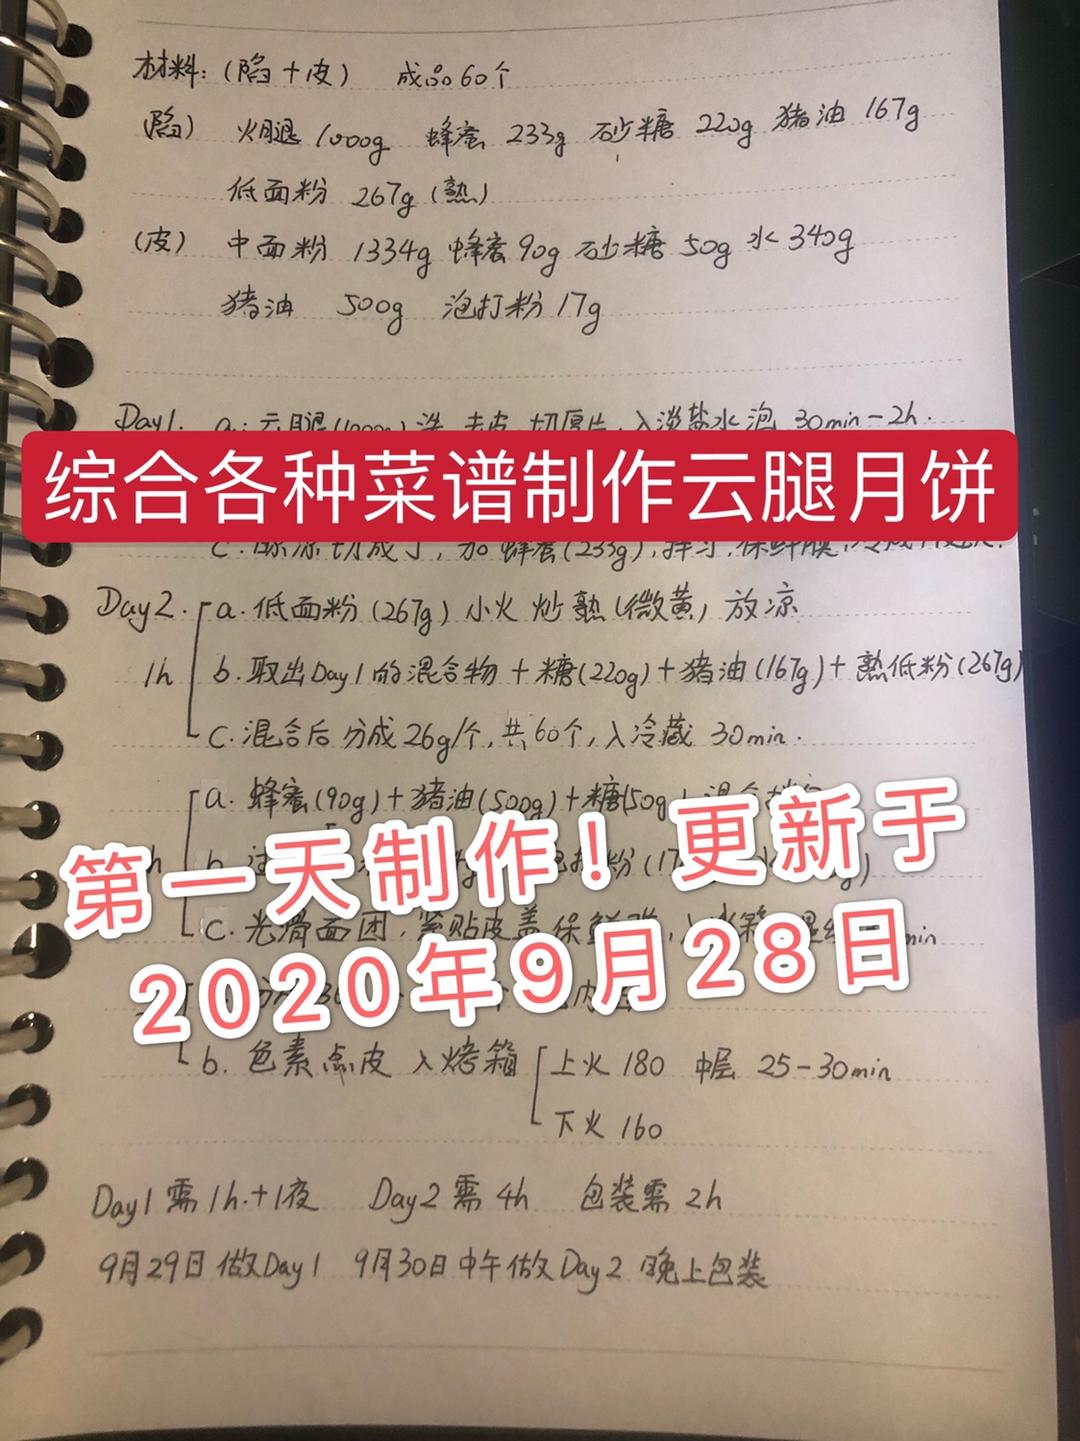 材料:(陷+皮) 成品60个
(陷) 火腿 1000g 蜂蜜 233g 砂糖 220g 猪油 167g
低面粉 267g(熟)
(皮) 中面粉 1334g 蜂蜜90g 砂糖 50g 水 340g
猪油 500g 泡打粉 17g
Day1. a. 云腿(1000g)洗,去皮,切厚片,入淡盐水泡 30min-2h.
综合各种菜谱制作云腿月饼
c.晾凉切成丁,加蜂蜜(233g),拌匀,保鲜膜,冷藏
Day2. a.低面粉(267g)小火炒熟(微黄)放凉
1h b.取出Day1的混合物+糖(220g)+猪油(167g)+熟低粉(267g)
c.混合后分成26g/个,共60个,入冷藏 30min.
a. 蜂蜜(90g)+猪油(500g)+糖(50g)混合
第一天制作!更新于
粉(17
c.光滑面团,紧贴皮盖保鲜膜,入冰箱 min
2020年9月28日
b. 色素点皮 入烤箱 上火 180 中层 25-30min
下火 160
Day1需1h.+1夜 Day2需4h 包装需2h
9月29日做Day1 9月30日中午做Day2 晚上包装